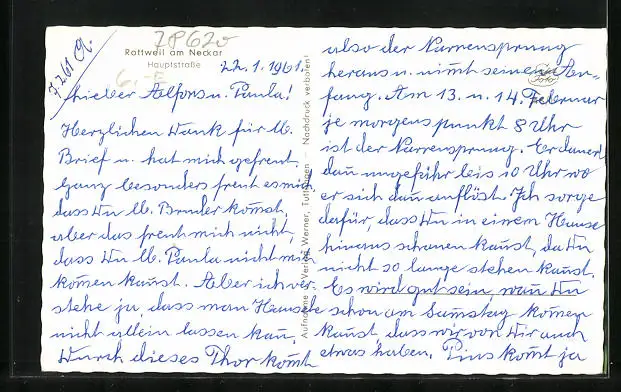 7.2.61 A.
78620
Rottweil am Neckar
Hauptstraße
6.-E
22.1.1961.
Lieber Alfons u. Paula!
Herzlichen Dank für lb.
Brief u. hat mich gefreut.
Ganz besonders freut es mich,
dass Du lb. Bruder kom̄st,
aber das freut mich nicht,
dass Du lb. Paula nicht mit
kom̄en kan̄st. Aber ich ver-
stehe ja, dass man Haus
nicht allein lassen kan̄.
Durch dieses Thor kom̄t
Aufnahme u. Verlag Werner, Tuttlingen — Nachdruck verboten!
also der Narrensprung
heraus u. nim̄t seinen An-
fang. Am 13. u. 14. Februar
je morgens punkt 8 Uhr
ist der Narrensprung. Er dauert
dan̄ ungefähr bis 10 Uhr wo
er sich dan̄ auflöst. Ich sorge
dafür, dass Du in einem Hause
hinaus schauen kan̄st, da Du
nicht so lange stehen kan̄st.
Es wird gut sein, wan̄ Du
schon am Samstag kom̄en
kan̄st, dass wir von Dir auch
etwas haben. Pius kom̄t ja
Foto